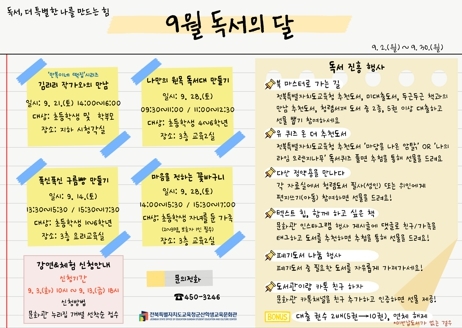 독서, 더 특별한 나를 만드는 힘
9월 독서의 달
9. 2.(월) ~ 9. 30.(월)
김리리 작가와의 만남
일시: 9. 21.(토) 14:00~16:00
대상: 초등학생 및 학부모
장소: 지하 시청각실
나만의 원목 독서대 만들기
일시: 9. 28.(토)
09:30~11:00 / 11:00~12:30
대상: 초등학생 4~6학년
장소: 3층 교육2실
폭신폭신 구름빵 만들기
일시: 9. 14.(토)
13:30~15:30 / 15:30~17:30
대상: 초등학생 1~6학년
장소: 3층 요리교육실
마음을 전하는 꽃바구니
일시: 9. 28.(토)
14:00~15:30 / 15:30~17:00
대상: 초등학생 자녀를 둔 가족
장소: 3층 교육2실
강연&체험 신청안내
신청기간
9. 3.(화) 10시 ~ 9. 13.(금) 18시
신청방법
문화관 누리집 개별 선착순 접수
문의전화
☎450-3246
전북특별자치도교육청군산학생교육문화관
독서 진흥 행사
북 마스터로 가는 길
전북특별자치도교육청 추천도서, 미대출도서, 두근두근 책과의
만남 추천도서, 청렴세계 도서 중 2권, 5권 이상 대출하고
선물 받기 참여하세요
유 퀴즈 온 더 추천도서
문화관 추천도서
독서퀴즈 풀면 추첨을 통해 선물을 드려요
다산 정약용을 만나다
각 자료실에서 청렴도서 필사(성인) 또는 위인에게
편지쓰기(아동) 참여하면 선물을 드려요
텍스트 힙, 함께 하고 싶은 책
문화관 인스타그램 행사 게시글에 댓글로 친구/가족을
태그하고 도서를 추천하면 추첨을 통해 선물을 드려요
폐기도서 나눔 행사
폐기도서 중 필요한 도서를 자유롭게 가져가세요!
도서관이랑 카톡 친구 하자
문화관 카톡채널을 친구 추가하고 인증하면 선물 제공!
BONUS 대출 권수 2배(5권→10권), 연체 해제